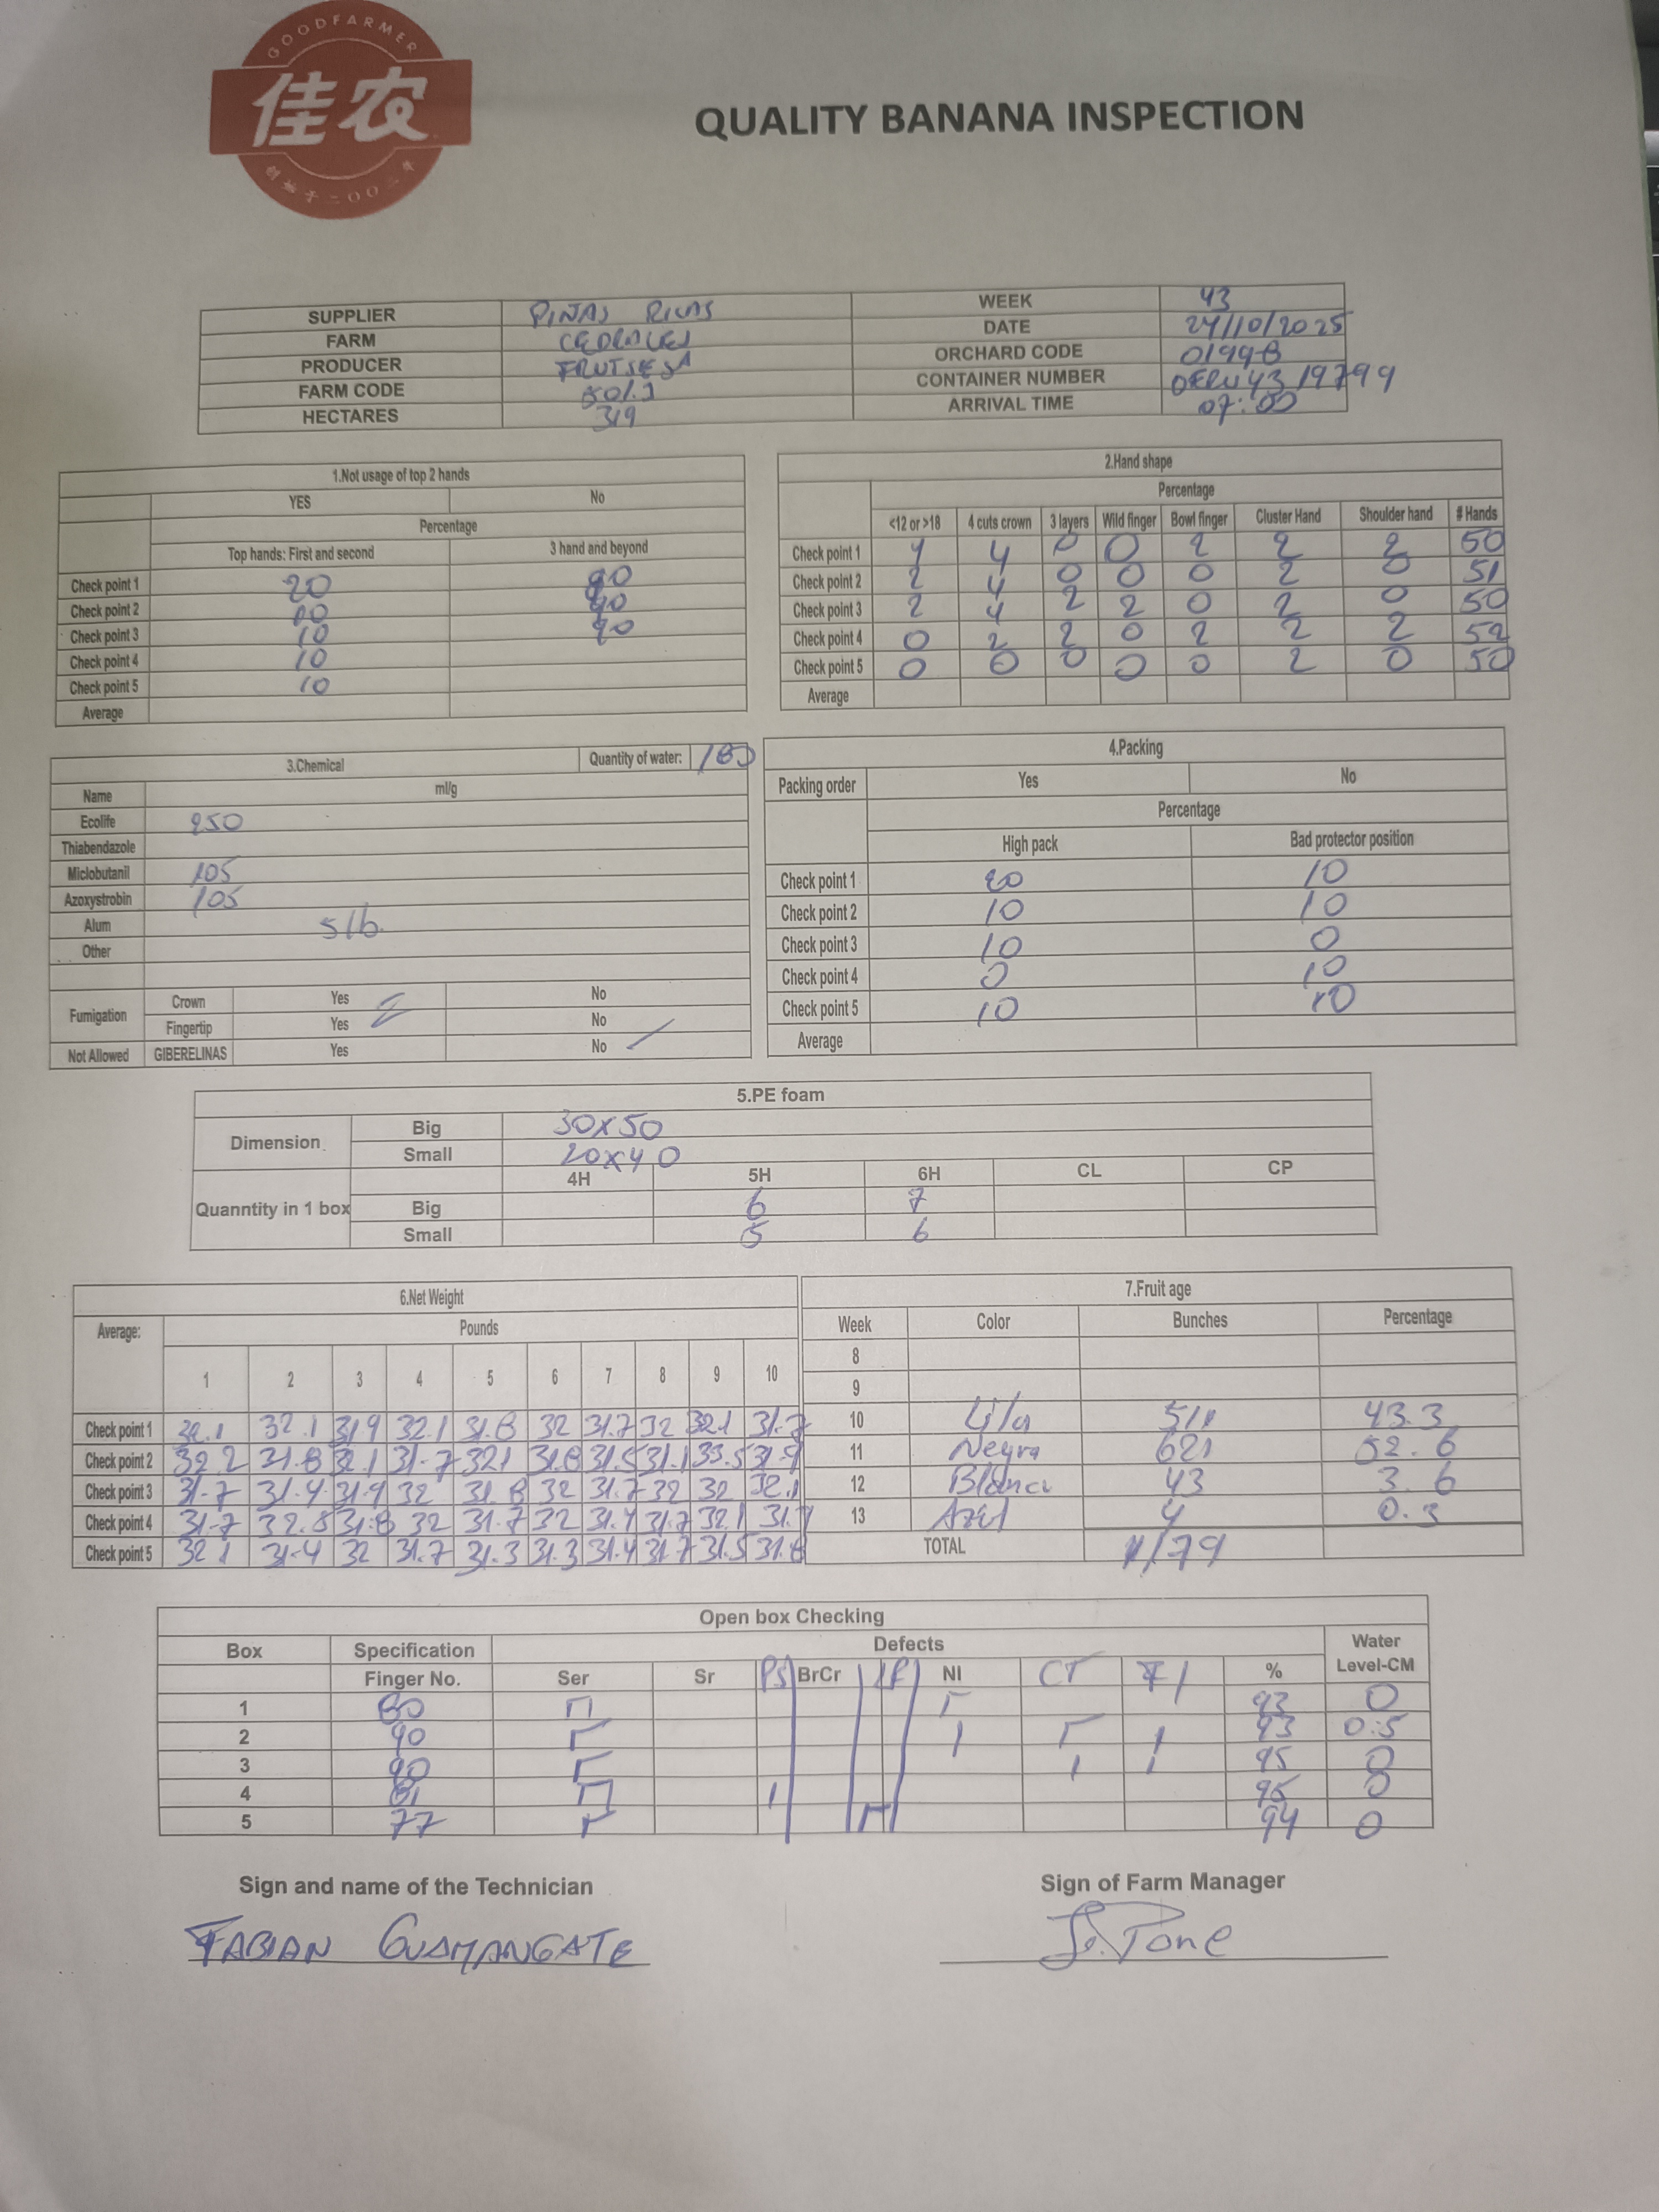 GOODFARMER
佳农
创始于二〇〇二年
QUALITY BANANA INSPECTION
SUPPLIER PIÑAS RICAS WEEK 43
FARM CEDRALES DATE 24/10/2025
PRODUCER FRUTSESA ORCHARD CODE 0199-B
FARM CODE CONTAINER NUMBER 4319799
HECTARES 319 ARRIVAL TIME 07:00
1.Not usage of top 2 hands
YES No
Percentage
Top hands: First and second 3 hand and beyond
Check point 1 20 90
Check point 2 10 90
Check point 3 10 90
Check point 4 10
Check point 5 10
Average
2.Hand shape
Percentage
<12 or >18 4 cuts crown 3 layers Wild finger Bowl finger Cluster Hand Shoulder hand # Hands
Check point 1 4 4 0 0 2 2 2 50
Check point 2 2 4 0 0 0 2 0 51
Check point 3 2 4 2 2 0 2 0 50
Check point 4 0 2 2 0 2 2 2 52
Check point 5 0 0 0 0 0 2 0 50
Average
3.Chemical Quantity of water: 180
Name ml/g
Ecolife 250
Thiabendazole
Miclobutanil 105
Azoxystrobin 105
Alum 5 lb.
Other
Fumigation Crown Yes No
Fingertip Yes No
Not Allowed GIBERELINAS Yes No
4.Packing
Packing order Yes No
Percentage
High pack Bad protector position
Check point 1 20 10
Check point 2 10 10
Check point 3 10 0
Check point 4 0 10
Check point 5 10 10
Average
5.PE foam
Dimension Big 30x50
Small 20x40
4H 5H 6H CL CP
Quanntity in 1 box Big 6 7
Small 5 6
6.Net Weight
Average: Pounds
1 2 3 4 5 6 7 8 9 10
Check point 1 32.1 32.1 31.9 32.1 31.8 32 31.7 32 32.1 31.7
Check point 2 32.2 31.8 32.1 31.7 32.1 31.8 31.5 31.1 33.5 31.9
Check point 3 31.7 31.4 31.9 32 31.8 32 31.7 32 32 32.1
Check point 4 31.7 32.8 31.8 32 31.7 32 31.4 31.7 32.1 31.7
Check point 5 32.1 31.4 32 31.7 31.3 31.3 31.4 31.7 31.5 31.8
7.Fruit age
Week Color Bunches Percentage
8
9
10 Lila 511 43.3
11 Negra 621 52.6
12 Blanca 43 3.6
13 Azul 4 0.3
TOTAL 1179
Open box Checking
Box Specification Defects Water Level-CM
Finger No. Ser Sr PS BrCr NI CT %
1 80 93 0
2 90 93 0.5
3 90 95 0
4 81 95 0
5 77 94 0
Sign and name of the Technician Sign of Farm Manager
FABIAN GUAMANGATE